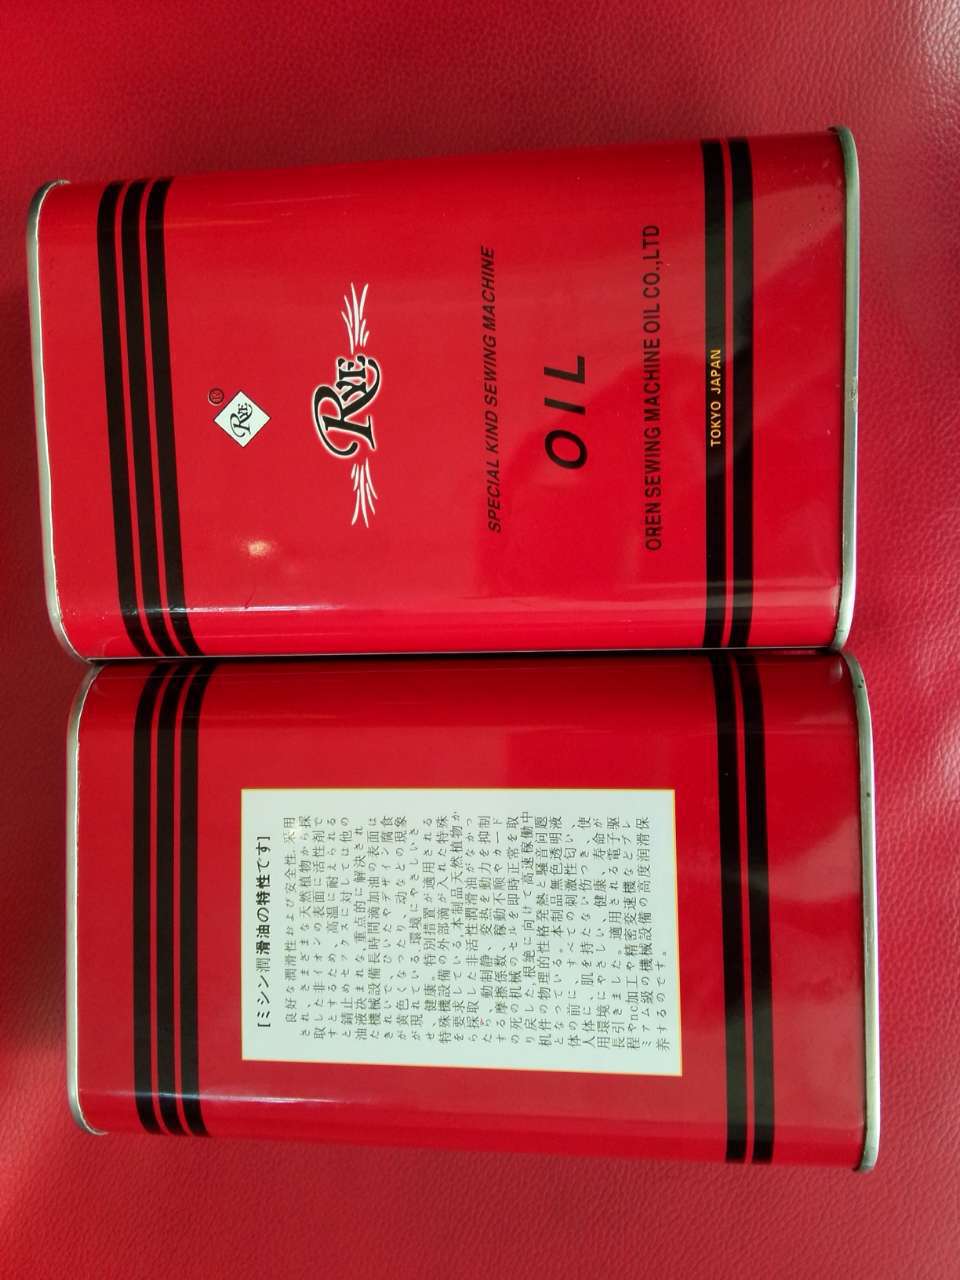 RYE
RYE
SPECIAL KIND SEWING MACHINE
OIL
OREN SEWING MACHINE OIL CO.,LTD
TOKYO JAPAN
[ミシン潤滑油の特性です]
良好な潤滑性および安全性、采用
され、さまざまな天然植物から採
取した非イオンの表面に活性剤で
すとするため、高温に耐えられる
と錆止めセックスに対しては他の
油液決まれな、重点的に解決され
た機械設備長時間滴加油の表面は
きれいで、ひいたやデザイン腐食
が黄色くなったり、動などの現象
が現れている、環境にやさしいき
せ、健康。特別措置が適用される
特殊機設備の外部滴が入れた特殊
を要求している、本制品天然植物か
ら採取した非活性潤滑油がなかっ
たら、動制静、変熱を動力を抑制
する摩擦係数、稼動不順やカード
の死の机械のセルを即時正常を取
り戻した,根絶に向けて高速稼働中
机件の物理的性格発熱と騒音问题
となつている。本制品無色透明液
体の前に、すべての刺激性匂い
人体に、肌を持たない伤つき、使
用環境にやさしい、健康、寿命が
長引きました。適用される電子駆
程やnc加工や精密変速機などプレ
ミアム級の機械設備の高度润滑保
养するのです。